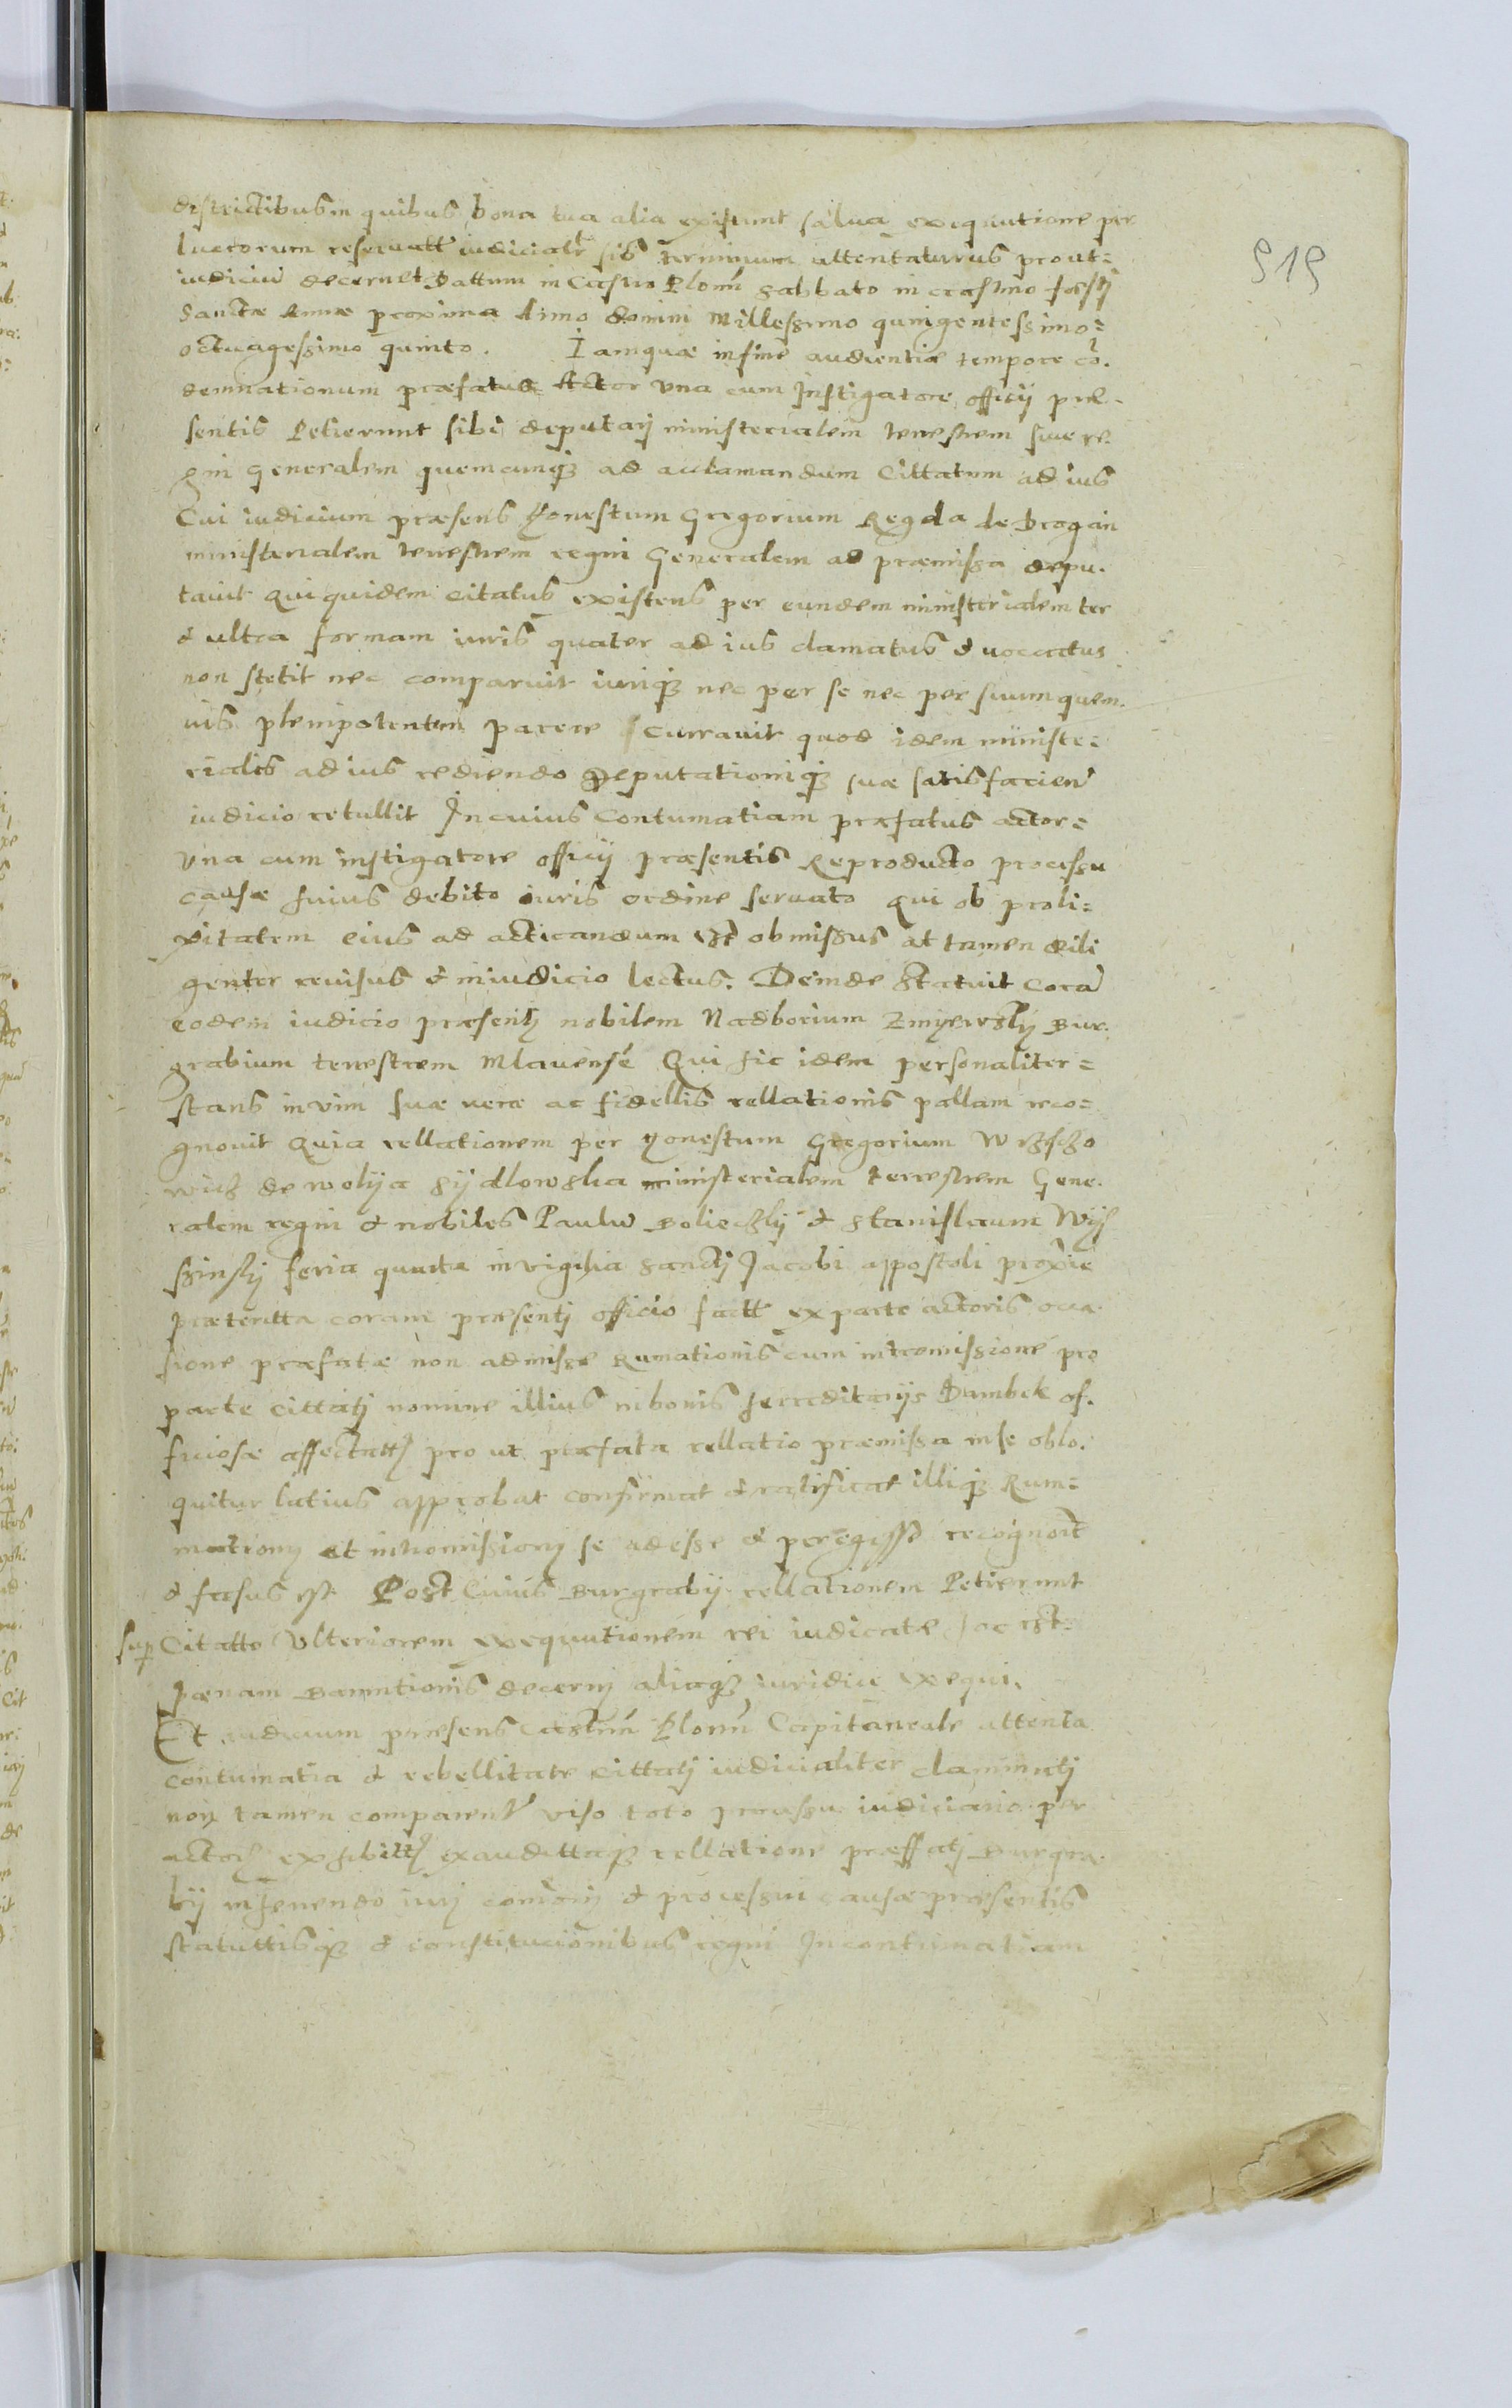 519
districtibus in quibus bona tua alia existunt salua exequutione per
lucrorum reseruatt iudicialr sis terminum attentaturus prout=
iudiciū decernet Dattum in Castro Plonn̄ sabbato in crastino festi
Sanctæ Annæ proxima Anno domini Millessimo quingentessimo=
octuagessimo quinto. Iamquæ in fine audientiæ tempore cō.
demnationum præfatus Actor vna cum Instigatore officij præ-
sentis Petierunt sibi deputarj ministerialem terrestrem siue re.
gni Generalem quemcunqʒ ad acclamandum Cittatum ad ius
Cui iudicium præsens Honestum Gregorium Regda de Drogan
ministerialem terrestrem regni Generalem ad præmissa depu.
tauit Qui quidem citatus existens per eundem ministerialem ter
& ultra formam iuris quater ad ius clamatus & uoccatus
non stetit nec comparuit iuriqʒ nec per se nec per suum quem.
uis plenipotentem parere curauit quod idem ministe=
rialis ad ius rediendo Deputationiqʒ suæ satisfacien̄
iudicio retullit In cuius Contumatiam præfatus actor=
vna cum instigatore officij præsentis Reproducto processu
causæ huius debito iuris ordine seruato qui ob proli=
xitatem eius ad acticandum est obmissus at tamen dili
genter reuisus & in iudicio lectus. Deinde statuit corā
eodem iudicio præsentj nobilem Nadborium Zmyewskj Bur.
grabium terrestrem Mlauensē Qui hic idem personaliter=
stans in vim suæ veræ ac fidellis rellationis pallam reco=
gnouit Quia rellationem per Honestum Gregorium
de wolya Sydlowska ministerialem terrestrem Gene.
ralem regni & nobiles Paulū & Stanislaum Wys
szinskj feria quarta in vigilia sanctj Jacobi appostoli proxie
præteritta coram præsentj officio factt ex parte actoris occa
sione præfatæ non admissæ Rumationis cum intromissione pro
parte cittatj nomine illius in bonis hereditarijs Dambek of.
ficiosæ affectatt pro ut præfata rellatio præmissa in se oblo.
quitur latius approbat confirmat & ratificat illiqʒ Rum=
mationj et intromissionj se adesse & peregisse recognoit
& fassus est Post Cuius Burgrabij rellationem Petierunt
sup Citatto Vlteriorem exequutionem rei iudicatæ hoc est=
pænam Bannitionis decernj aliaqʒ iuridice exequi.
Et iudicium præsens Castren̄ Plonn̄ Capitaneale attenta
contumatia & rebellitate cittatj iudicialiter clammatj
non tamen comparent viso toto processu iudiciario per
actor exhibitt exaudittaqʒ rellatione præffatj Burgra
bij inhærendo iurj & processui causæ præsentis
statuttisqʒ & constitucionibus regni In contumatiam